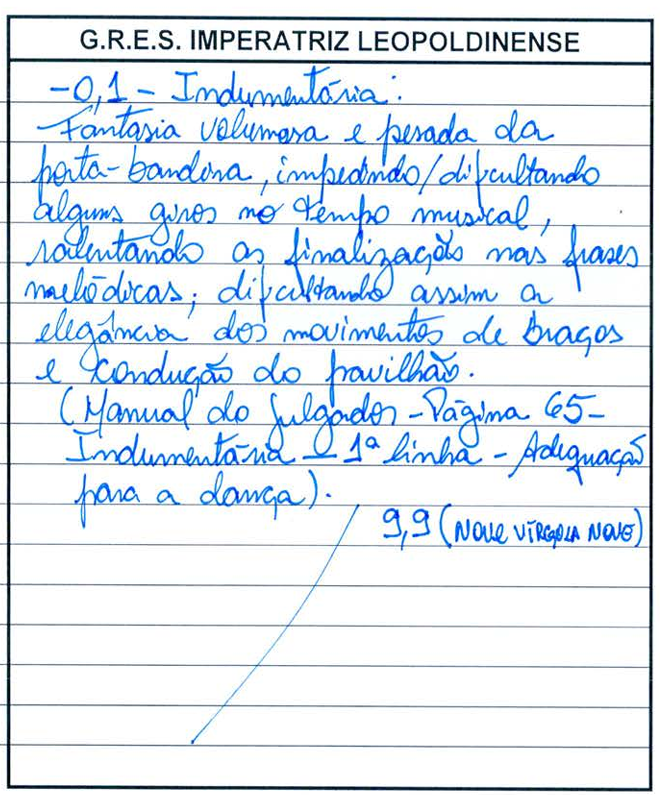 G.R.E.S. IMPERATRIZ LEOPOLDINENSE
-0,1 - Indumentária:
Fantasia volumosa e pesada da
porta-bandeira, impedindo/dificultando
alguns giros no tempo musical,
ralentando as finalizações nas frases
melódicas; dificultando assim a
elegância dos movimentos de braços
e condução do pavilhão.
(Manual do Julgador - Página 65 -
Indumentária - 1ª linha - Adequação
para a dança).
9,9 (NOVE VÍRGULA NOVE)